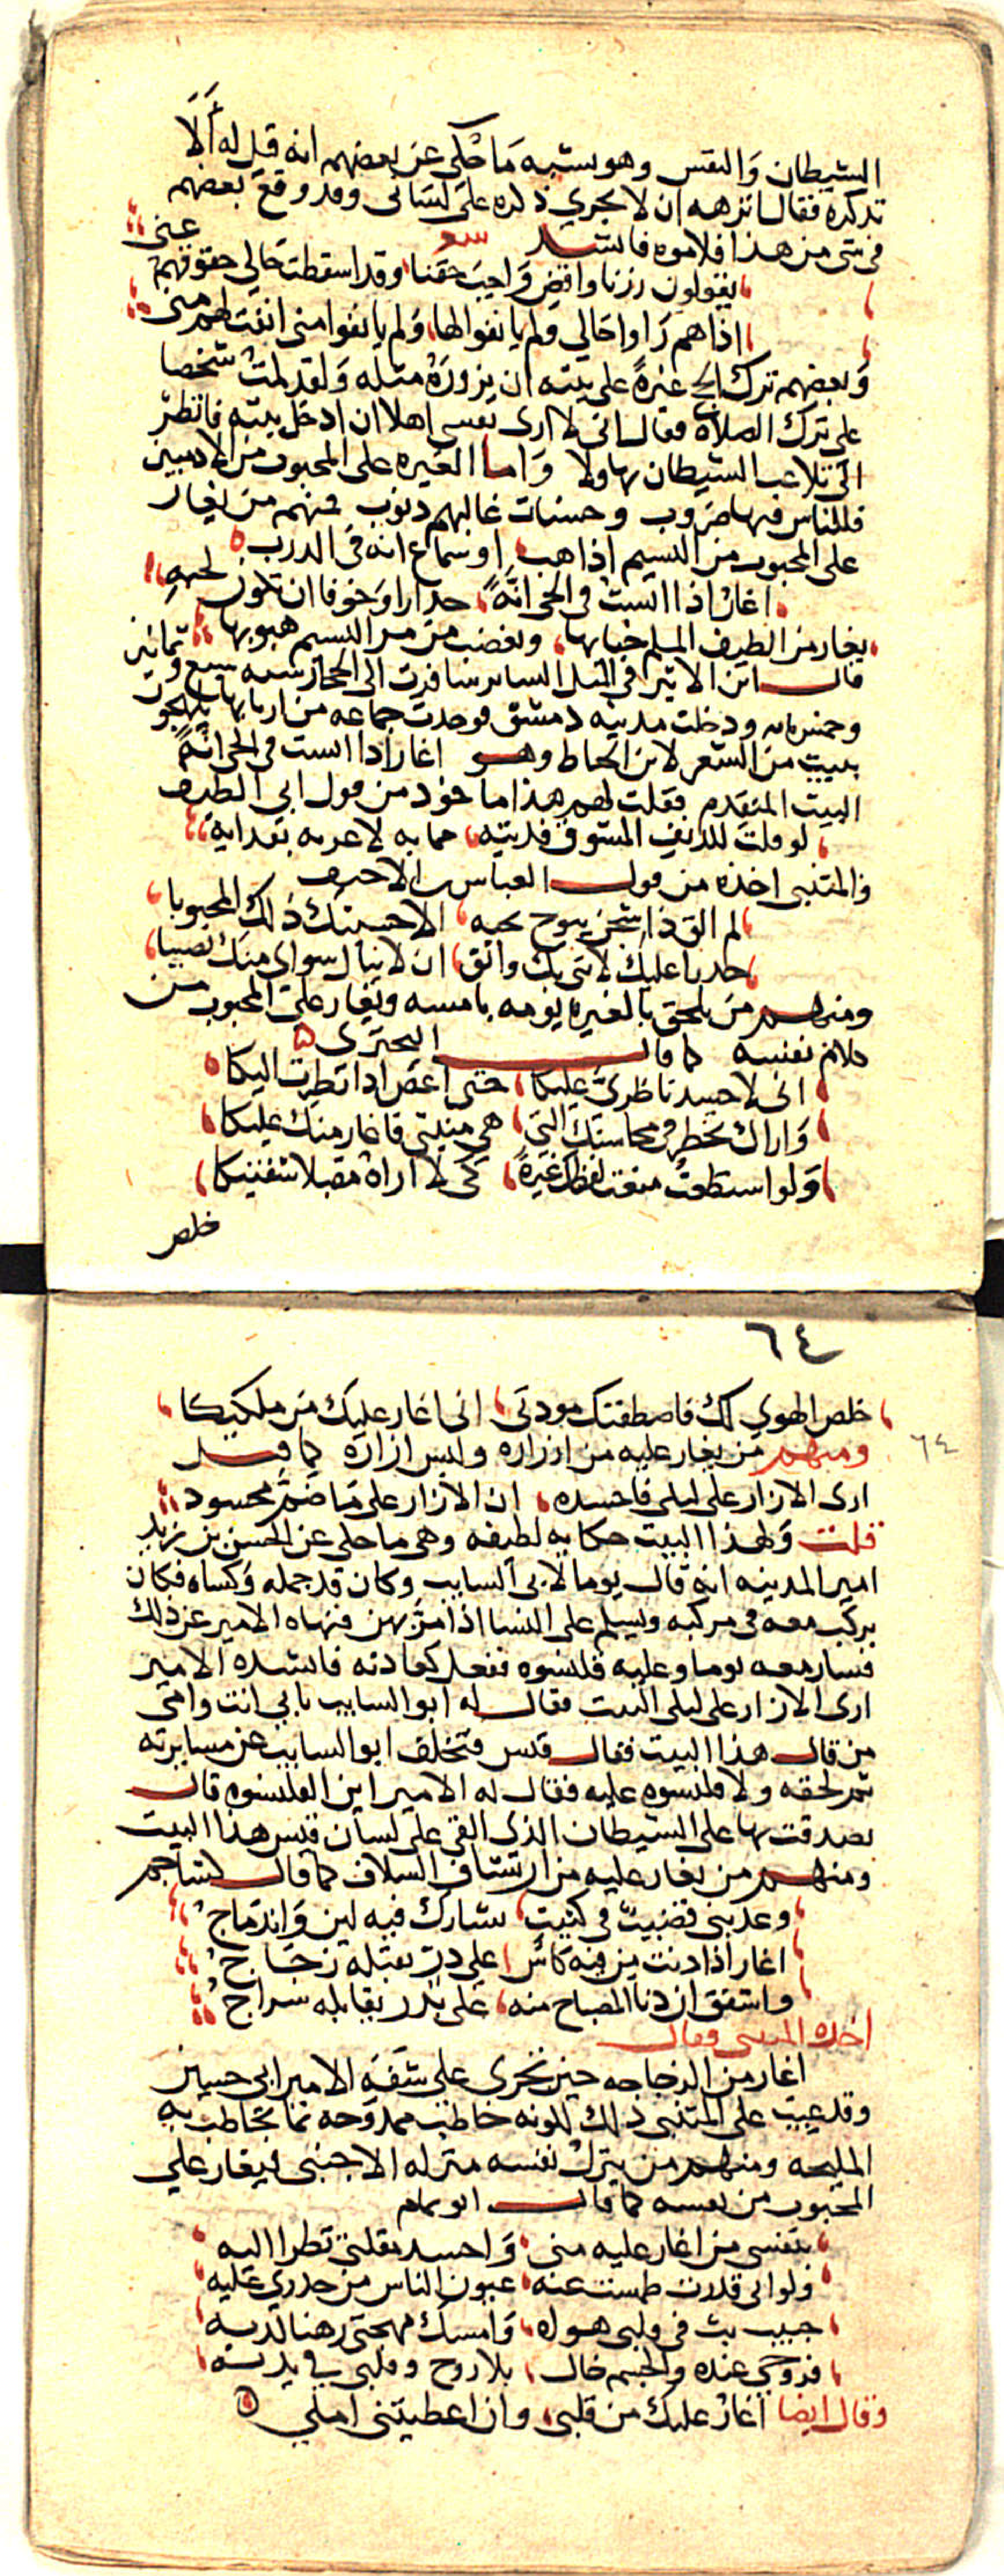 الشيطان والنفس وهو يشبه ما حكى عن بعضهم انه قيل له ألا
تذكره فقال انزهه ان لا يجري ذكره على لساني وقد وقع بعضهم
في شي من هذا فلاموه فانشد
يقولون زرنا واقض واجب حقنا وقد اسقطت حالي حقوقهم عني
اذا هم راوا حالي ولم يانفوا لها ولم يانفوا مني انفت لهم مني
وبعضهم ترك الحج غيرة على بيته ان يزوره مثله ولقد لمت شخصا
على ترك الصلاة فقال اني لا ارى نفسي اهلا ان ادخل بيته فانظر
الى تلاعب الشيطان بهاولا واما الغيره على المحبوب من الادميين
فللناس فيها ضروب وحسنات غالبهم ذنوب فمنهم من يغار
على المحبوب من النسيم اذا هب او سماع انه في الدرب
اغار اذا انست في الحي انة حذارا وخوفا ان تكون لحبه
يغار من الطيف الملم خيالها ويغضب من مر النسيم هبوبها
قال ابن الاثير في المثل الساير سافرت الى الحجاز سنه سبع وثمانين
وخمسمايه ودخلت مدينه دمشق فوجدت جماعه من اربابها يلهجون
ببيت من الشعر لابن الخياط وهو اغار اذا انست في الحي انة
البيت المتقدم فقلت لهم هذا ماخوذ من قول ابي الطيب
لو قلت للدنف المشوق فديته مما به لاغرته بفدايه
والمتنبي اخذه من قول العباس بن الاحنف
لم الق ذا شجن يبوح بحبه الا حسبتك ذلك المحبوبا
حذرا عليك لاني بك واثق ان لا ينال سواي منك نصيبا
ومنهم من يلحق بالغيره يومه بامسه ويغار على المحبوب من
نفسه كما قال البحتري
اني لاحسد ناظري عليكا حتى اغض اذا نظرت اليكا
واراك تخطر في محاسنك التي هي منيتي فاغار منك عليكا
ولو استطعت منعت لفظك غيرة كي لا اراه مقبلا شفتيكا
خلص
٦٤
خلص الهوى لك فاصطفتك مودتي اني اغار عليك من ملكيكا
٦٤
ومنهم من يغار عليه من ازراره ولبس ازاره كما قيل
ارى الازار على ليلى فاحسده ان الازار على ما ضم محسود
قلت ولهذا البيت حكايه لطيفه وهي ما حكي عن الحسن بن زيد
امير المدينه انه قال يوما لابي السايب وكان قد جمله وكساه فكان
يركب معه في مركبه ويسلم على النسا اذا مر بهن فنهاه الامير عن ذلك
فسار معه يوما وعليه قلنسوه ففعل كعادته فانشده الامير
ارى الازار على ليلى البيت فقال له ابو السايب بابي انت وامي
من قال هذا البيت فقال قيس فتخلف ابو السايب عن مسايرته
ثم لحقه ولا قلنسوه عليه فقال له الامير اين القلنسوه قال
تصدقت بها على الشيطان الذي القى على لسان قيس هذا البيت
ومنهم من يغار عليه من ارتشاف السلاف كما قال كشاجم
وعذبني قضيب في كثيب تشارك فيه لين واندماج
اغار اذا دنت من فيه كاس على در يقبله زجاج
واشفق ان دنا المصباح منه على بدر يقابله سراج
اخذه المتنبي وقال
اغار من الزجاجه حين تجري على شفة الامير ابي حسين
وقد عيب على المتنبي ذلك لكونه خاطب ممدوحه بما يخاطب به
المليحه ومنهم من ينزل نفسه منزله الاجنبي فيغار على
المحبوب من نفسه كما قال ابو تمام
بنفسي من اغار عليه مني واحسد مقلتي نظرا اليه
ولو اني قدرت طمست عنه عيون الناس من حذري عليه
حبيب بث في قلبي هواه وامسك مهجتي رهنا لديه
فروحي عنده والجسم خال بلا روح وقلبي في يديه
وقال ايضا اغار عليك من قلبي وان اعطيتني املي